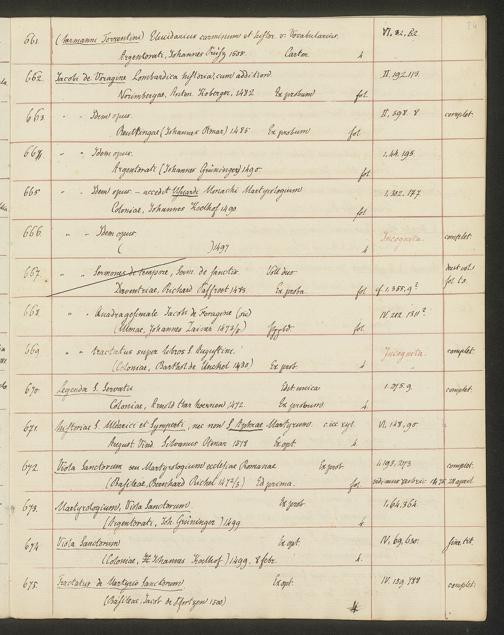 661. (Hermanni Torrentini) Elucidarius carminum et histor. s. Vocabularius. VI. 82. 82
Argentorati, Johannes Prüss 1508. Carton 4
662. Jacobi de Voragine Lombardica historia, cum additions II. 192.113.
Norimbergae, Anton Koberger, 1482 Ex probum fol.
663. " " Idem opus. II. 398. 8 complet.
Reutlingae (Johannes Otmar) 1485 Ex probum fol
664. " " Idem opus. 1.44.195.
Argentorati (Johannes Grüninger) 1490 fol
665 " " Idem opus – accedit Usuardi Monachi Martyrologium 1.302.177
Coloniae, Johannes Koelhof 1490 fol
666. " " Idem opus. Incognita. complet.
( ) 1497 4
667. " " Sermones de tempore, Serm. de sanctis Voll duo
Daventriae, Richard Paffroet 1483. Ex proba fol. cf. 1.388.9?
668. " " Quadragesimale Jacobi de Voragine (sic) IV. 1311?
(Ulmae, Johannes Zainer 1472/3) fol.
669 " " tractatus super libros S. Augustini. Incognita. complet.
(Coloniae, Barthol de Unckel 1480) Ex prob 4.
670 Legenda S. Servatii Edit unica 1.275.9 complet.
Coloniae, Arnold ther Hoernen, 1472 Ex probum 4.
671. Historiae S. Udalrici et Symperti, nec non S. Aphrae Martyrum. c. icc xyl. VI. 148,90
August Vind Silvanus Otmar 1516 Ex opt 4
672. Viola Sanctorum seu Martyrologium ecclesiae Romanae Ex prob 1.195,273 complet.
(Basileae, Bernhard Richel 1472/3) Ed prima. fol
673. Martyrologium, Viola Sanctorum Ex prob 1.64,364
(Argentorati, Joh. Grüninger) 1499 4
674 Viola Sanctorum Ex opt. IV. 69,
(Coloniae, Johannes Koelhof) 1499. 8 febr. 4.
675. Tractatus de Martyrio Sanctorum Ex opt. IV. 159,788 complet.
(Basileae, Jacob de Pfortzen 1500) 4